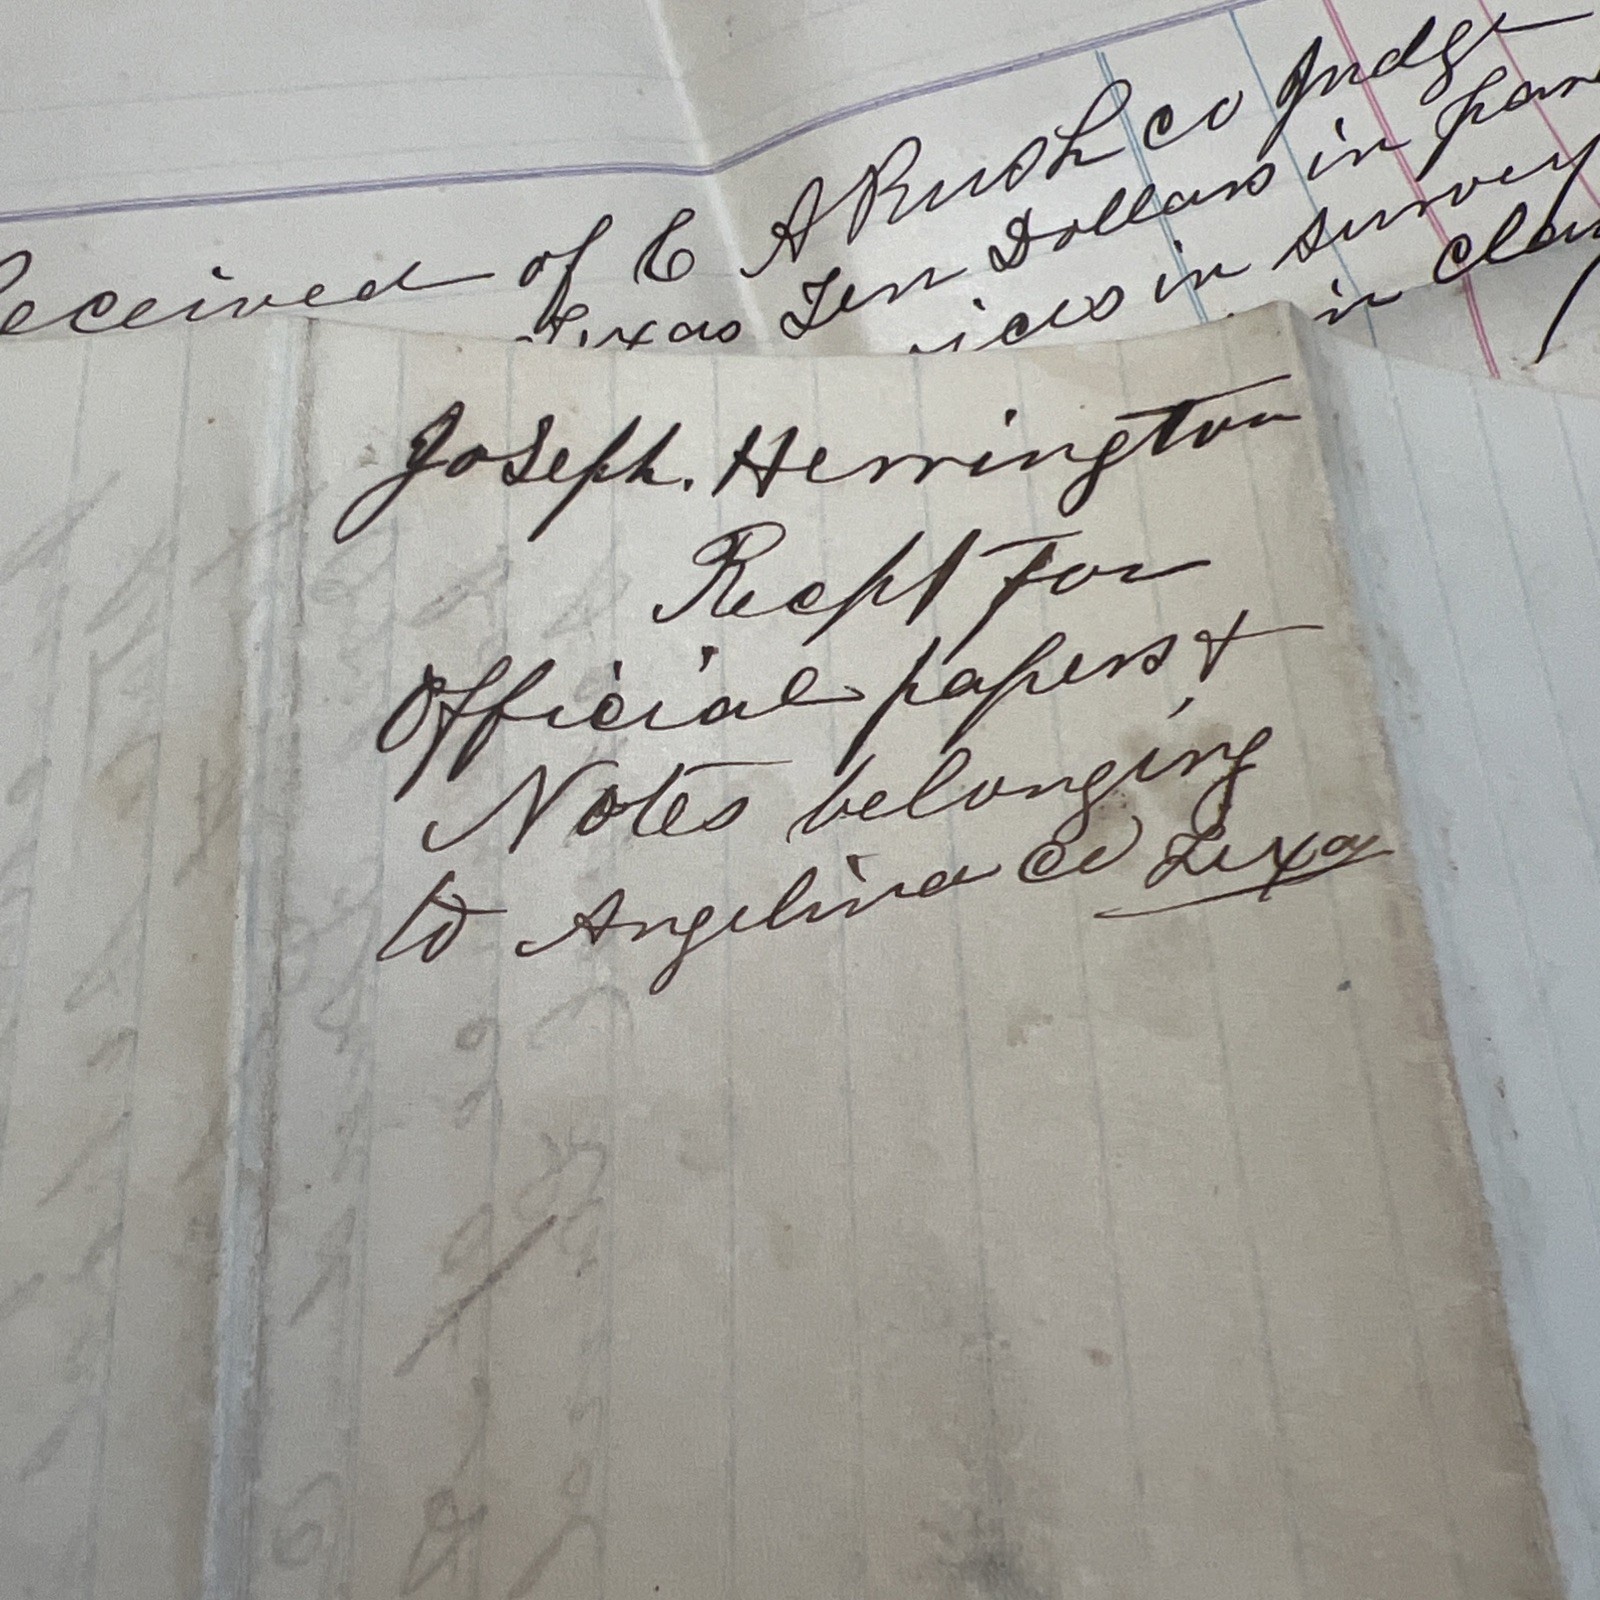 Received of E A Rush co Judge
Texas Ten Dollars in
in survey
in
Joseph. Herrington
Recpt For
Official papers &
Notes belonging
to Angelina Co Texas